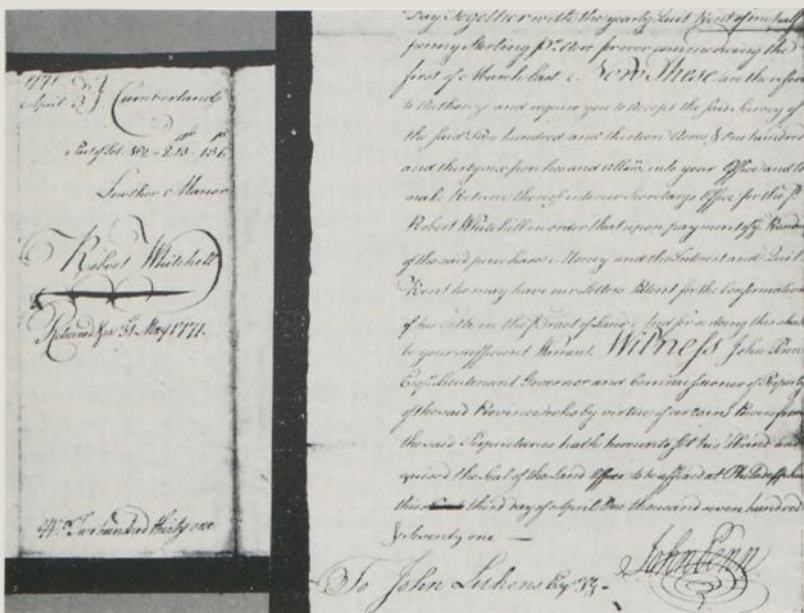 1771
April 3d
Cumberland
Part of Lot No 2 - 213 - 136
Lowther Manor
Robert Whitehill
Returned for 31 May 1771.
No Two hundred thirty one
Day Together with the yearly Quit Rent of one half
penny Sterling pr. Acre forever commencing the
first of March last Now These are therefore
to Authorize and require you to accept the said Survey of
the said two hundred and thirteen Acres & one hundred
and thirty six perches and Allow. into your Office and to
make Return thereof into our Secretarys Office for the sd.
Robert Whitehill in order that upon payment of ye Remdr.
of the said purchase Money and the Interest and Quit
Rent he may have our Letters Patent for the Confirmation
of his Title in the sd. Tract of Land And for so doing this shall
be your sufficient Warrant. Witness John Penn
Esqr. Lieutenant Governor and Commissioner of Property
of the said Province who by virtue of certain Powers from
the said Proprietaries hath hereunto set his Hand and
caused the Seal of the Land Office to be affixed at Philadelphia
this third day of April One thousand seven hundred
& Seventy one
John Penn
To John Lukens Esqr. SG.